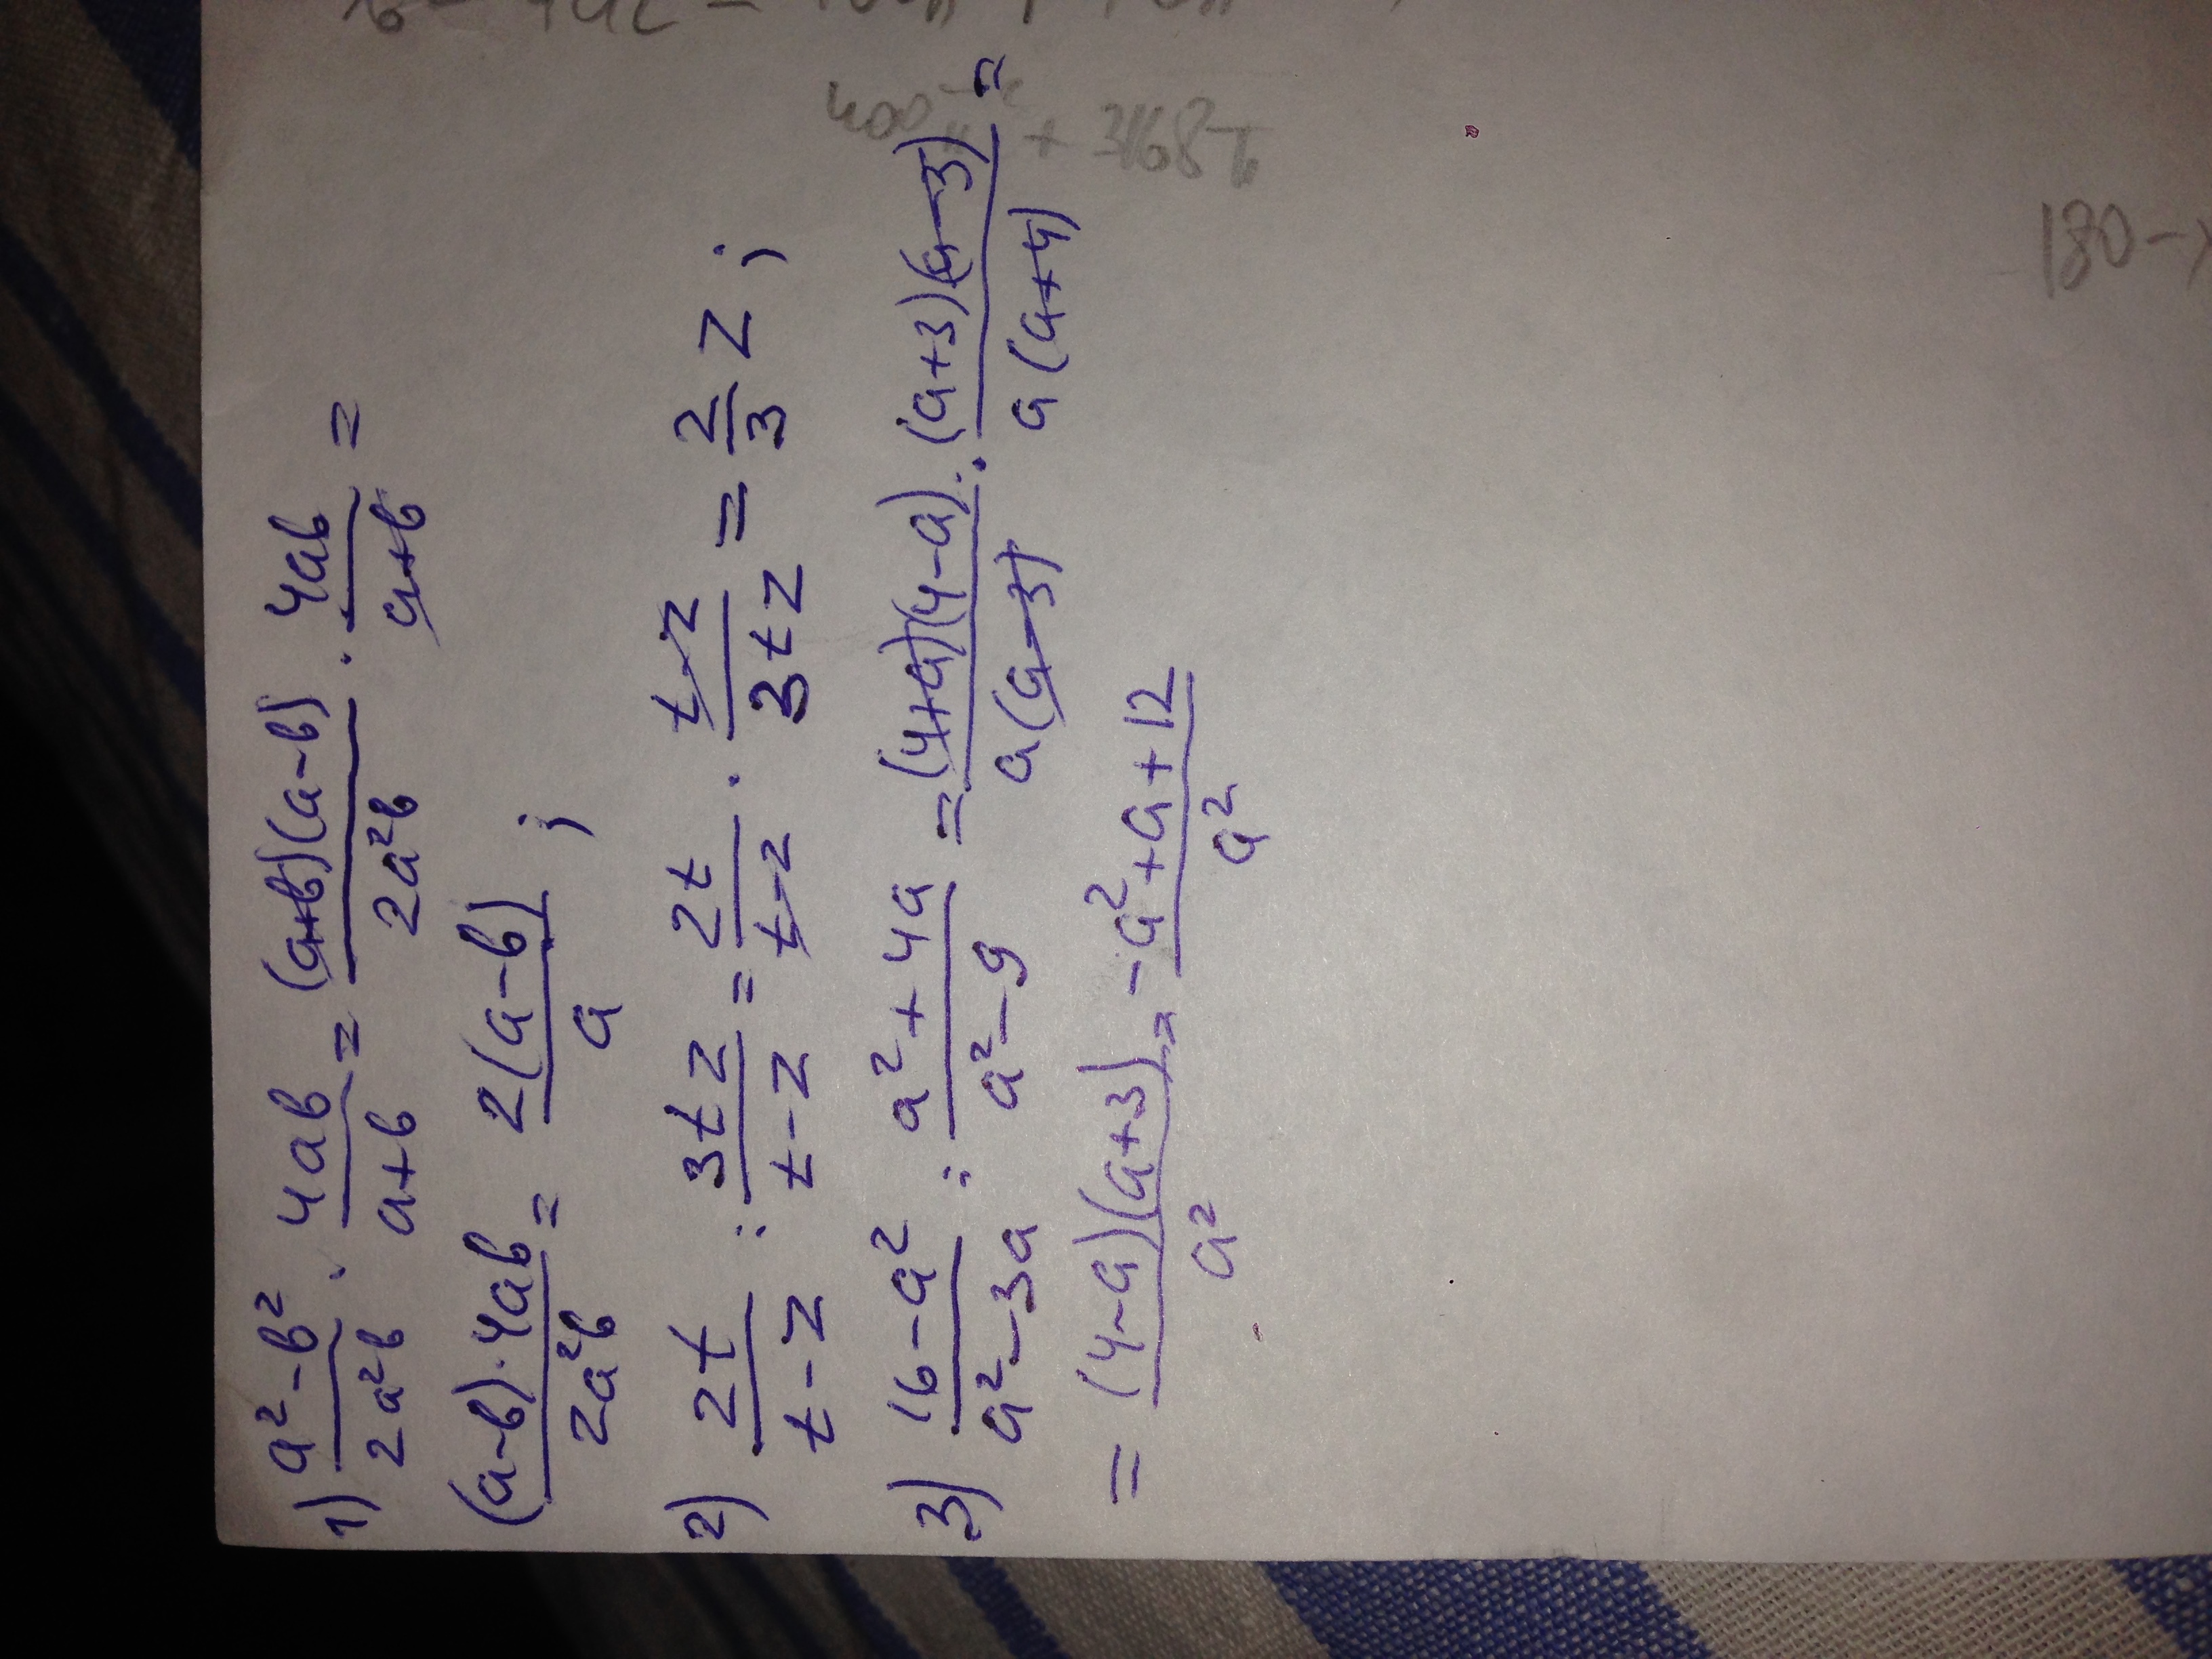 1) (a²-b²)/(2a²b) · (4ab)/(a+b) = ((a+b)(a-b))/(2a²b) · (4ab)/(a+b) =
((a-b)·4ab)/(2a²b) = (2(a-b))/a ;
2) (2t)/(t-z) : (3tz)/(t-z) = (2t)/(t-z) · (t-z)/(3tz) = 2/3 z ;
3) (16-a²)/(a²-3a) : (a²+4a)/(a²-9) = ((4+a)(4-a))/(a(a-3)) · ((a+3)(a-3))/(a(a+4)) =
= ((4-a)(a+3))/a² = (-a²+a+12)/a²
180-